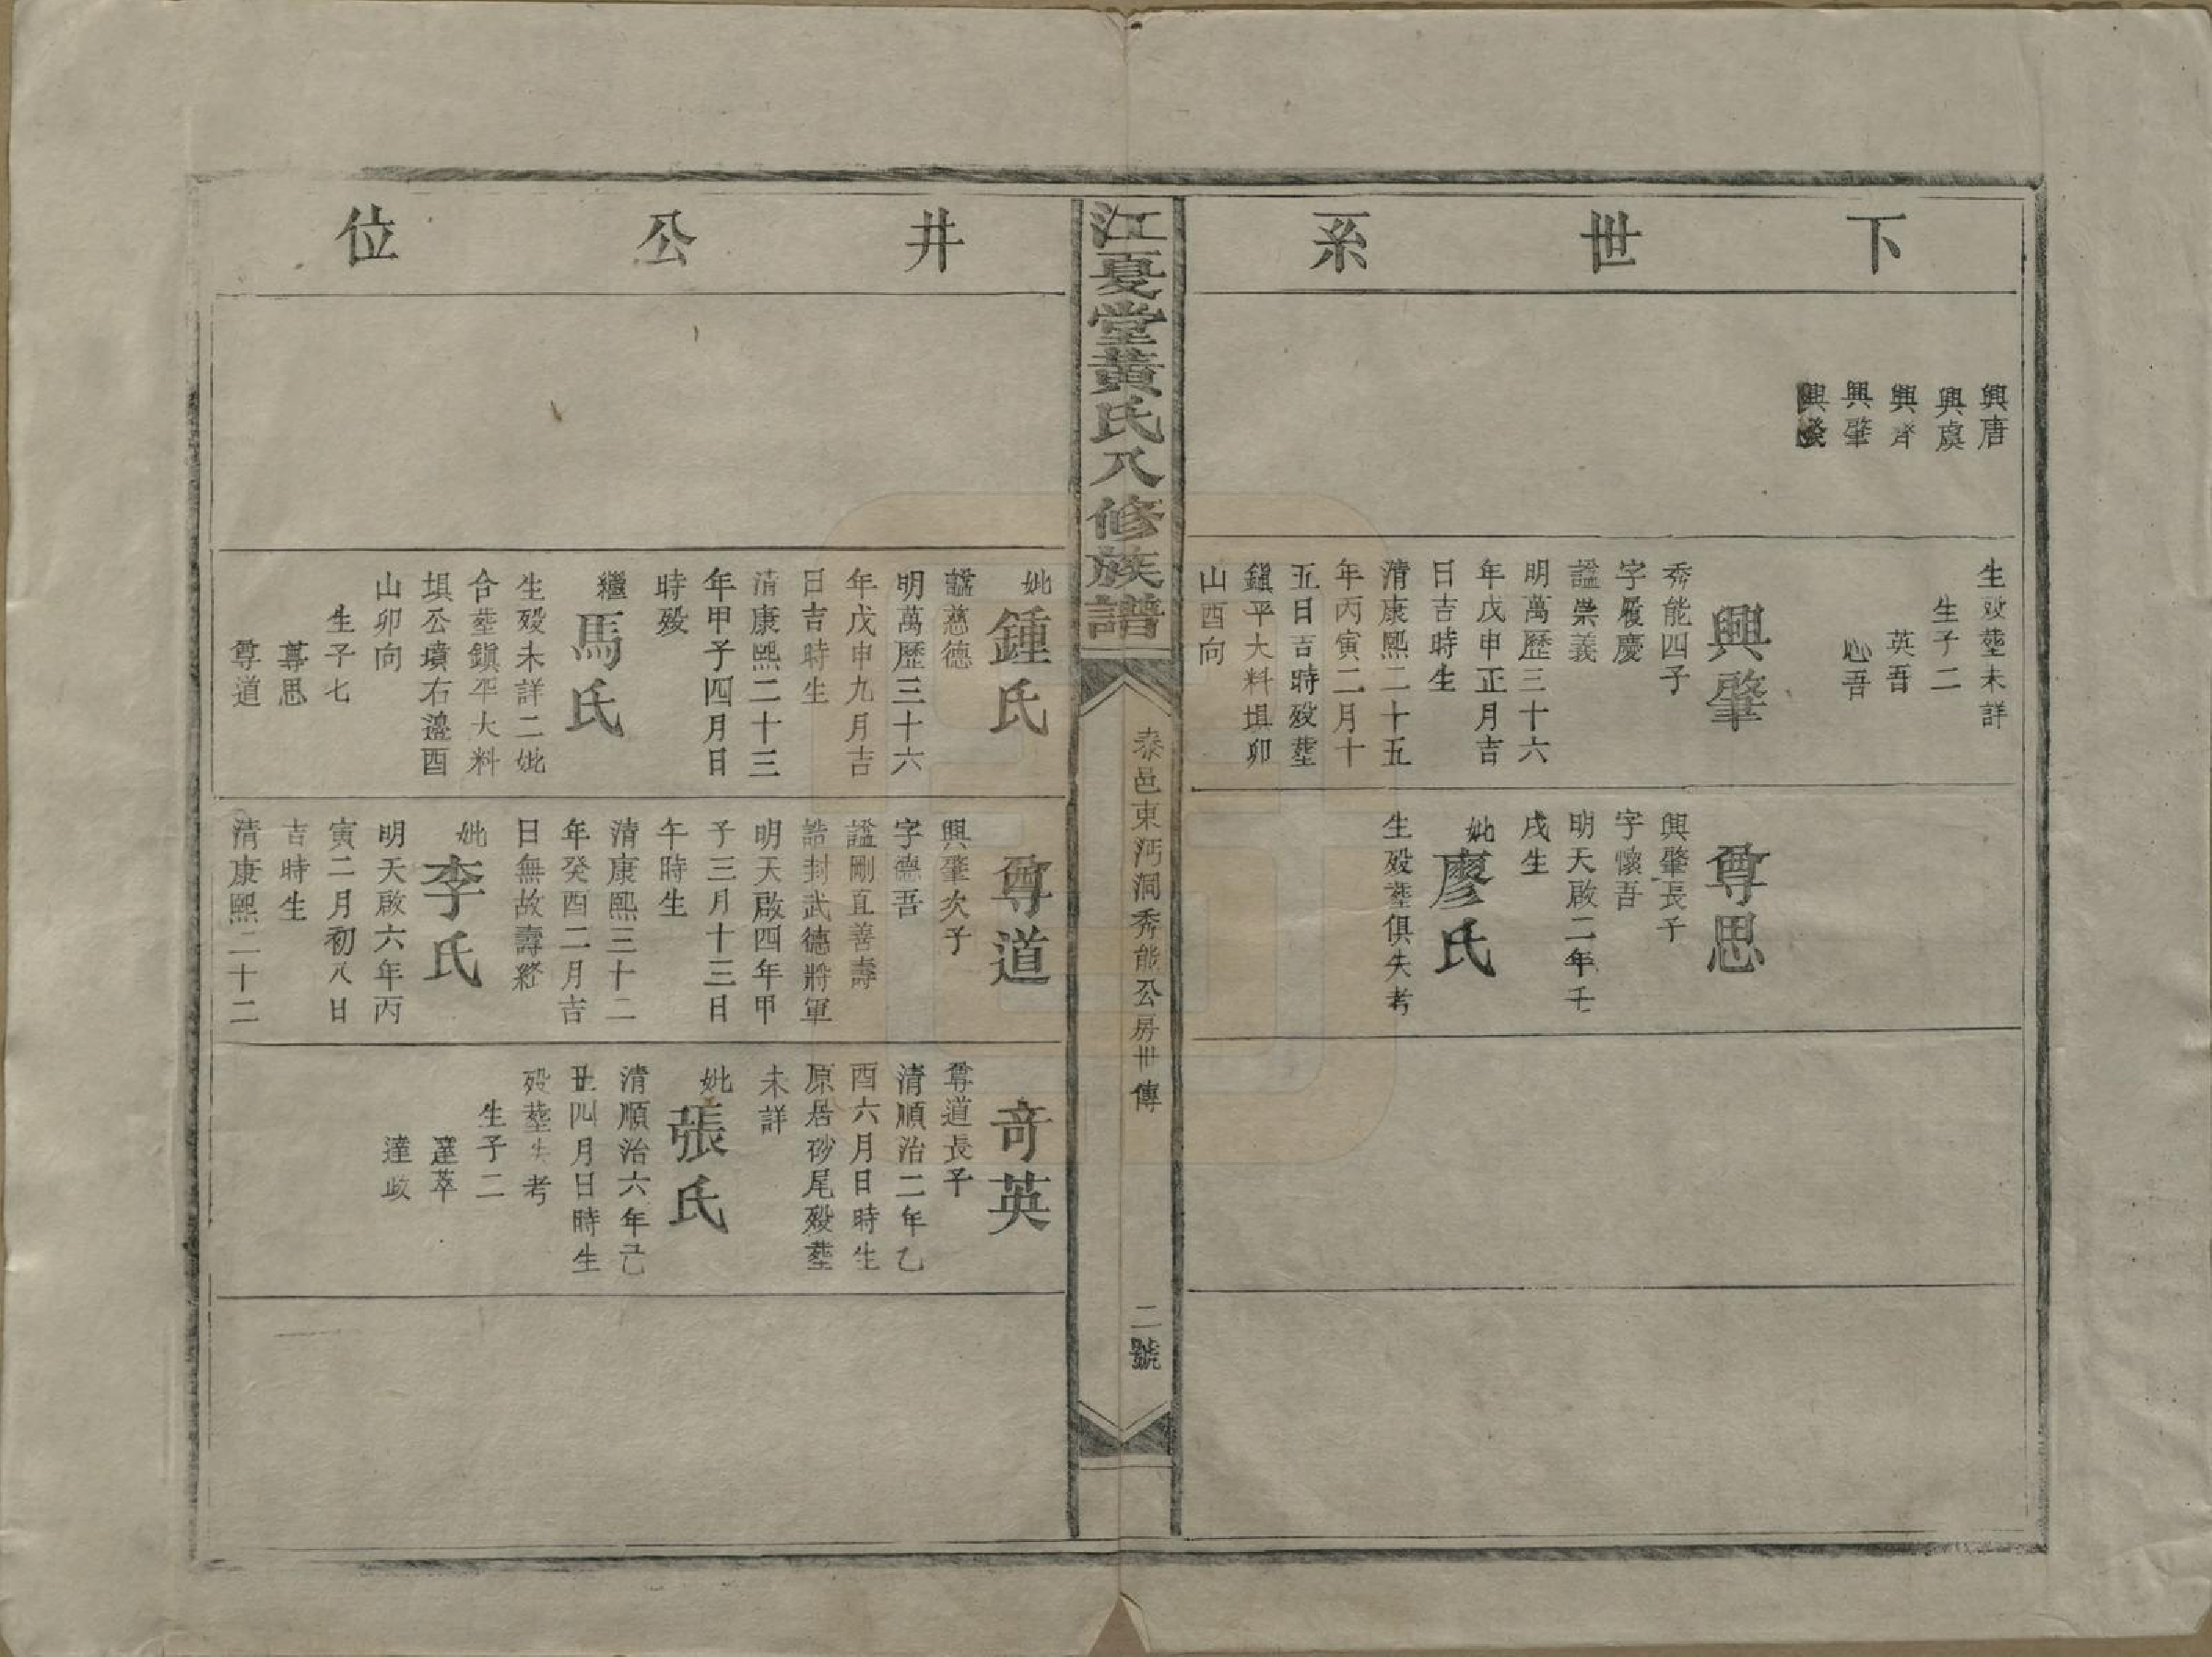 下世系
興唐
興虞
興齊
興肇
興發
生歿塟未詳
生子二
英吾
心吾
興肇
秀能四子
字履慶
諡崇義
明萬歷三十六
年戊申正月吉
日吉時生
清康熙二十五
年丙寅二月十
五日吉時歿塟
鎭平大料塤卯
山酉向
尊思
興肇長子
字懷吾
明天啟二年壬
戌生
妣廖氏
生歿塟俱失考
江夏堂黃氏八修族譜
泰邑東沔洞秀能公房世傳
二號
井公位
妣鍾氏
諡慈德
明萬歷三十六
年戊申九月吉
日吉時生
清康熙二十三
年甲子四月日
時歿
繼馬氏
生歿未詳二妣
合塟鎭平大料
塤公墳右邉酉
山卯向
生子七
尊思
尊道
尊道
興肇次子
字德吾
諡剛直善壽
誥封武德將軍
明天啟四年甲
子三月十三日
午時生
清康熙三十二
年癸酉二月吉
日無故壽終
妣李氏
明天啟六年丙
寅二月初八日
吉時生
清康熙二十二
奇英
尊道長子
清順治二年乙
酉六月日時生
原居砂尾歿塟
未詳
妣張氏
清順治六年己
丑四月日時生
歿塟失考
生子二
達萃
達政